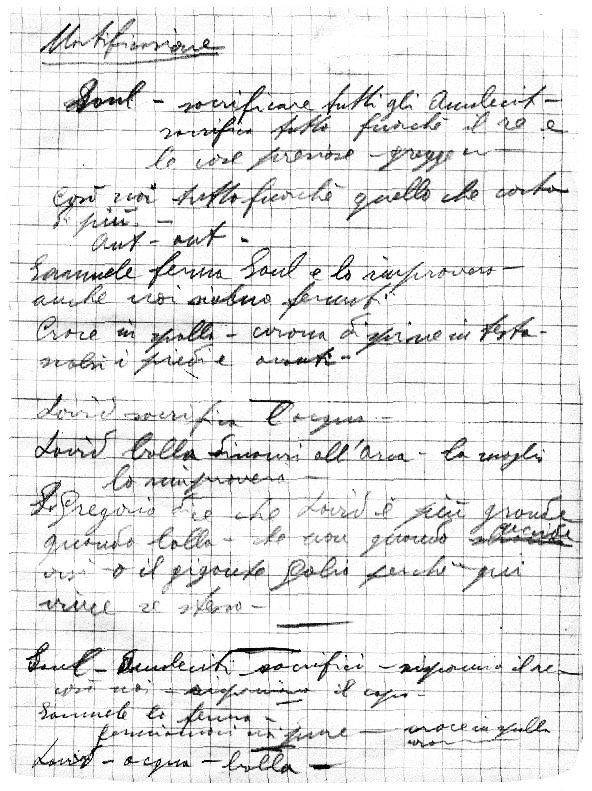 Mortificazione
Saul - sacrificare tutti gli Amalecit -
sacrifica tutto fuorchè il re e
le cose preziose - gregge
Così noi tutto fuorchè quello che costa
di più. -
aut - aut -
Samuele ferma Saul e lo rimprovera -
anche noi siamo fermati
Croce in spalla - corona di spine in testa -
nei piedi e avanti -
David sacrifica l'acqua -
David balla dinanzi all'Arca - la moglie
lo rimprovera -
S. Gregorio dice che David è più grande
quando balla - che non quando uccide
il gigante Golia perchè qui
vince se stesso -
Saul - Amaleciti sacrifici - risparmia il re -
così noi - risparmiamo il capo -
Samuele lo ferma -
fermiamoci noi pure - croce in spalla
David - acqua - balla -